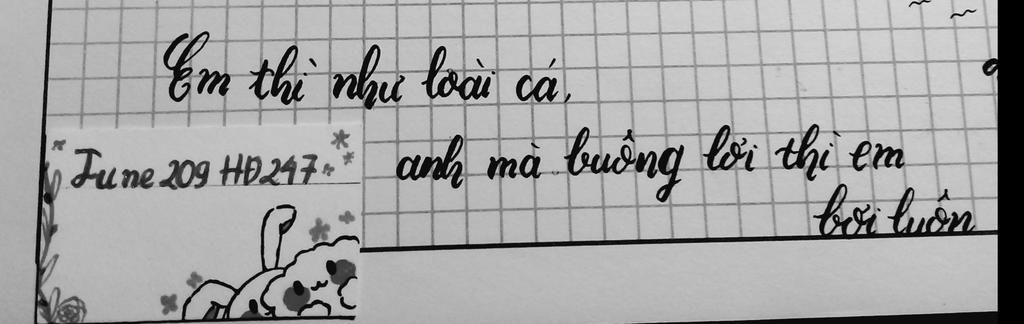 Em thì như loài cá,
anh mà buông lơi thì em
bơi luôn
June 209 HĐ247